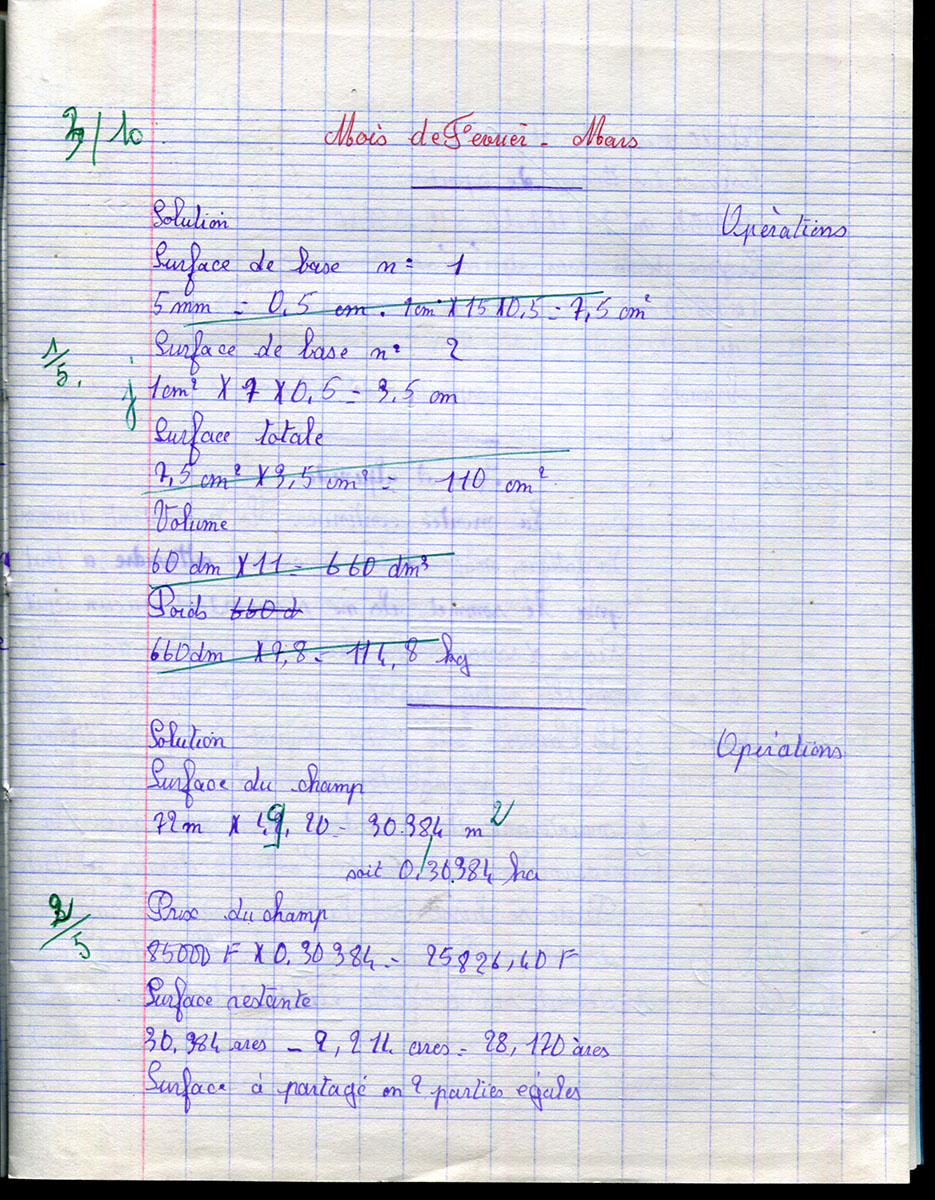 3/10
Mois de Fevrièr - Mars
Solution
Opèrations
Surface de base n° 1
5 mm = 0,5 cm. 1cm² X 15 X 0,5 = 7,5 cm²
Surface de base n° 2
1/5.
1 cm² X 7 X 0,5 = 3,5 cm
Surface totale
7,5 cm² X 3,5 cm² = 110 cm²
Volume
60 dm X 11 = 660 dm³
Poids 660 d
660 dm X 7,8 = 114,8 kg
Solution
Opèrations
Surface du champ
72 m X 42, 20 = 30.384 m²
soit 0,30384 ha
Prix du champ
2/5
85000 F X 0,30384 = 25826,40 F
Surface restante
30,384 ares - 2,214 ares = 28,170 àres
Surface à partagé en 2 parties egales